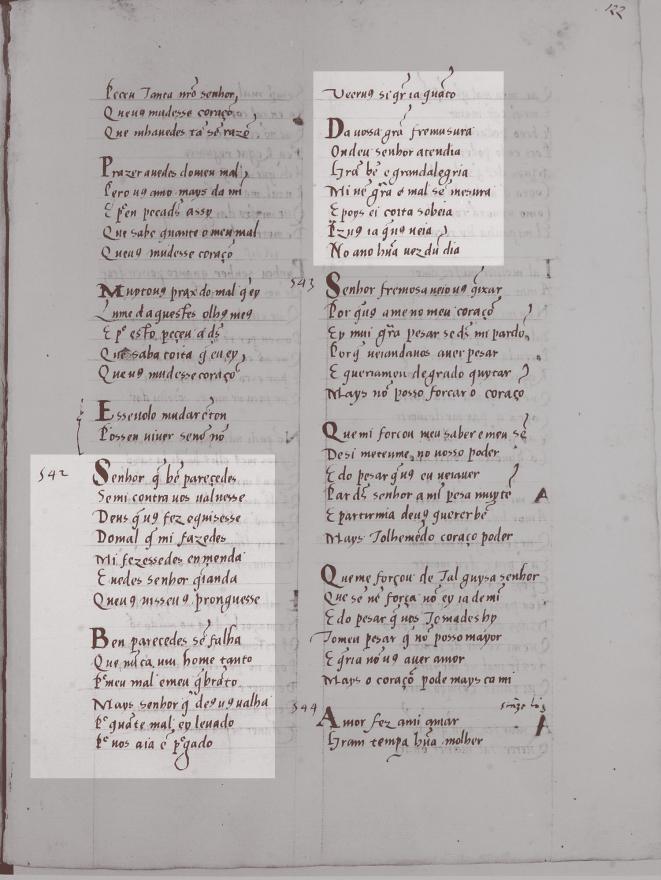 122
Peceu Tanta nr̃o senhor,
Que uꝯ mudesse coraçõ
Que mhauedes tã sẽ razõ
Prazer auedes do meu mal
Pero uꝯ amo mays ca mi
E pẽn pecads assy
Que sabe quante o meu mal
Que uꝯ mudesse coraçõ
Muytouꝯ praz do mal q̃ ey
Lume daquestes olhꝯ meꝯ
E pᵉ esto peçeu a ds̃
Que saba coita q̃ eu ey
Que uꝯ mudesse coraçõ
E sseuolo mudar enton
Possen viuer senõ nõ
542
Senhor q̃ bẽ pareçedes
Se mi contra uos ualuesse
Deus q̃ uꝯ fez e quisesse
Do mal q̃ mi fazedes
Mi fezessedes enmenda
E uedes senhor q̃ianda
Que uꝯ uisseuꝯ prouguesse
Ben parecedes sẽ falha
Que nũca uiu home tanto
Pᵉ meu mal e meu q̃brãto
Mays senhor q̃ deꝯ uꝯ ualha
Pᵉ quãte mal ey leuado
Pᵉ uos aia ẽ pᵉ gado
Veeruꝯ seq̃r ia quãto
Da uosa grã fremusura
Ondeu senhor atendia
Grã bẽ e grandalegria
Mi uẽ grã e mal sẽ mesura
E poys ei coita sobeia
Pzuꝯ ia q̃ uꝯ ueia
No ano hũa uez du dia
543
Senhor fremosa ueiouꝯ q̃ixar
Por q̃ uꝯ ame no meu coraçõ
Ey mui grã pesar se ds̃ mi pardõ
Porq̃ ueiandauos auer pesar
E queriameu de grado quytar
Mays nõ posso forcar o coraço
Que mi forcou meu saber e meu sẽ
Desi meteume no uosso poder
E do pesar q̃ uꝯ eu ueiauer
Par ds̃ senhor a mi pesa muyte
E partirmia deuꝯ querer bẽ
Mays Tolhemẽdo coraço poder
Que me forçou de Tal guysa senhor
Que sẽ nẽ força nõ ey ia de mi
E do pesar q̃ uos Tomades hy
Tomeu pesar q̃ nõ posso mayor
E q̃ria nõ uꝯ auer amor
Mays o coraço pode mays ca mi
544
Amor fez a mi amar
Gram tempa hũa molher